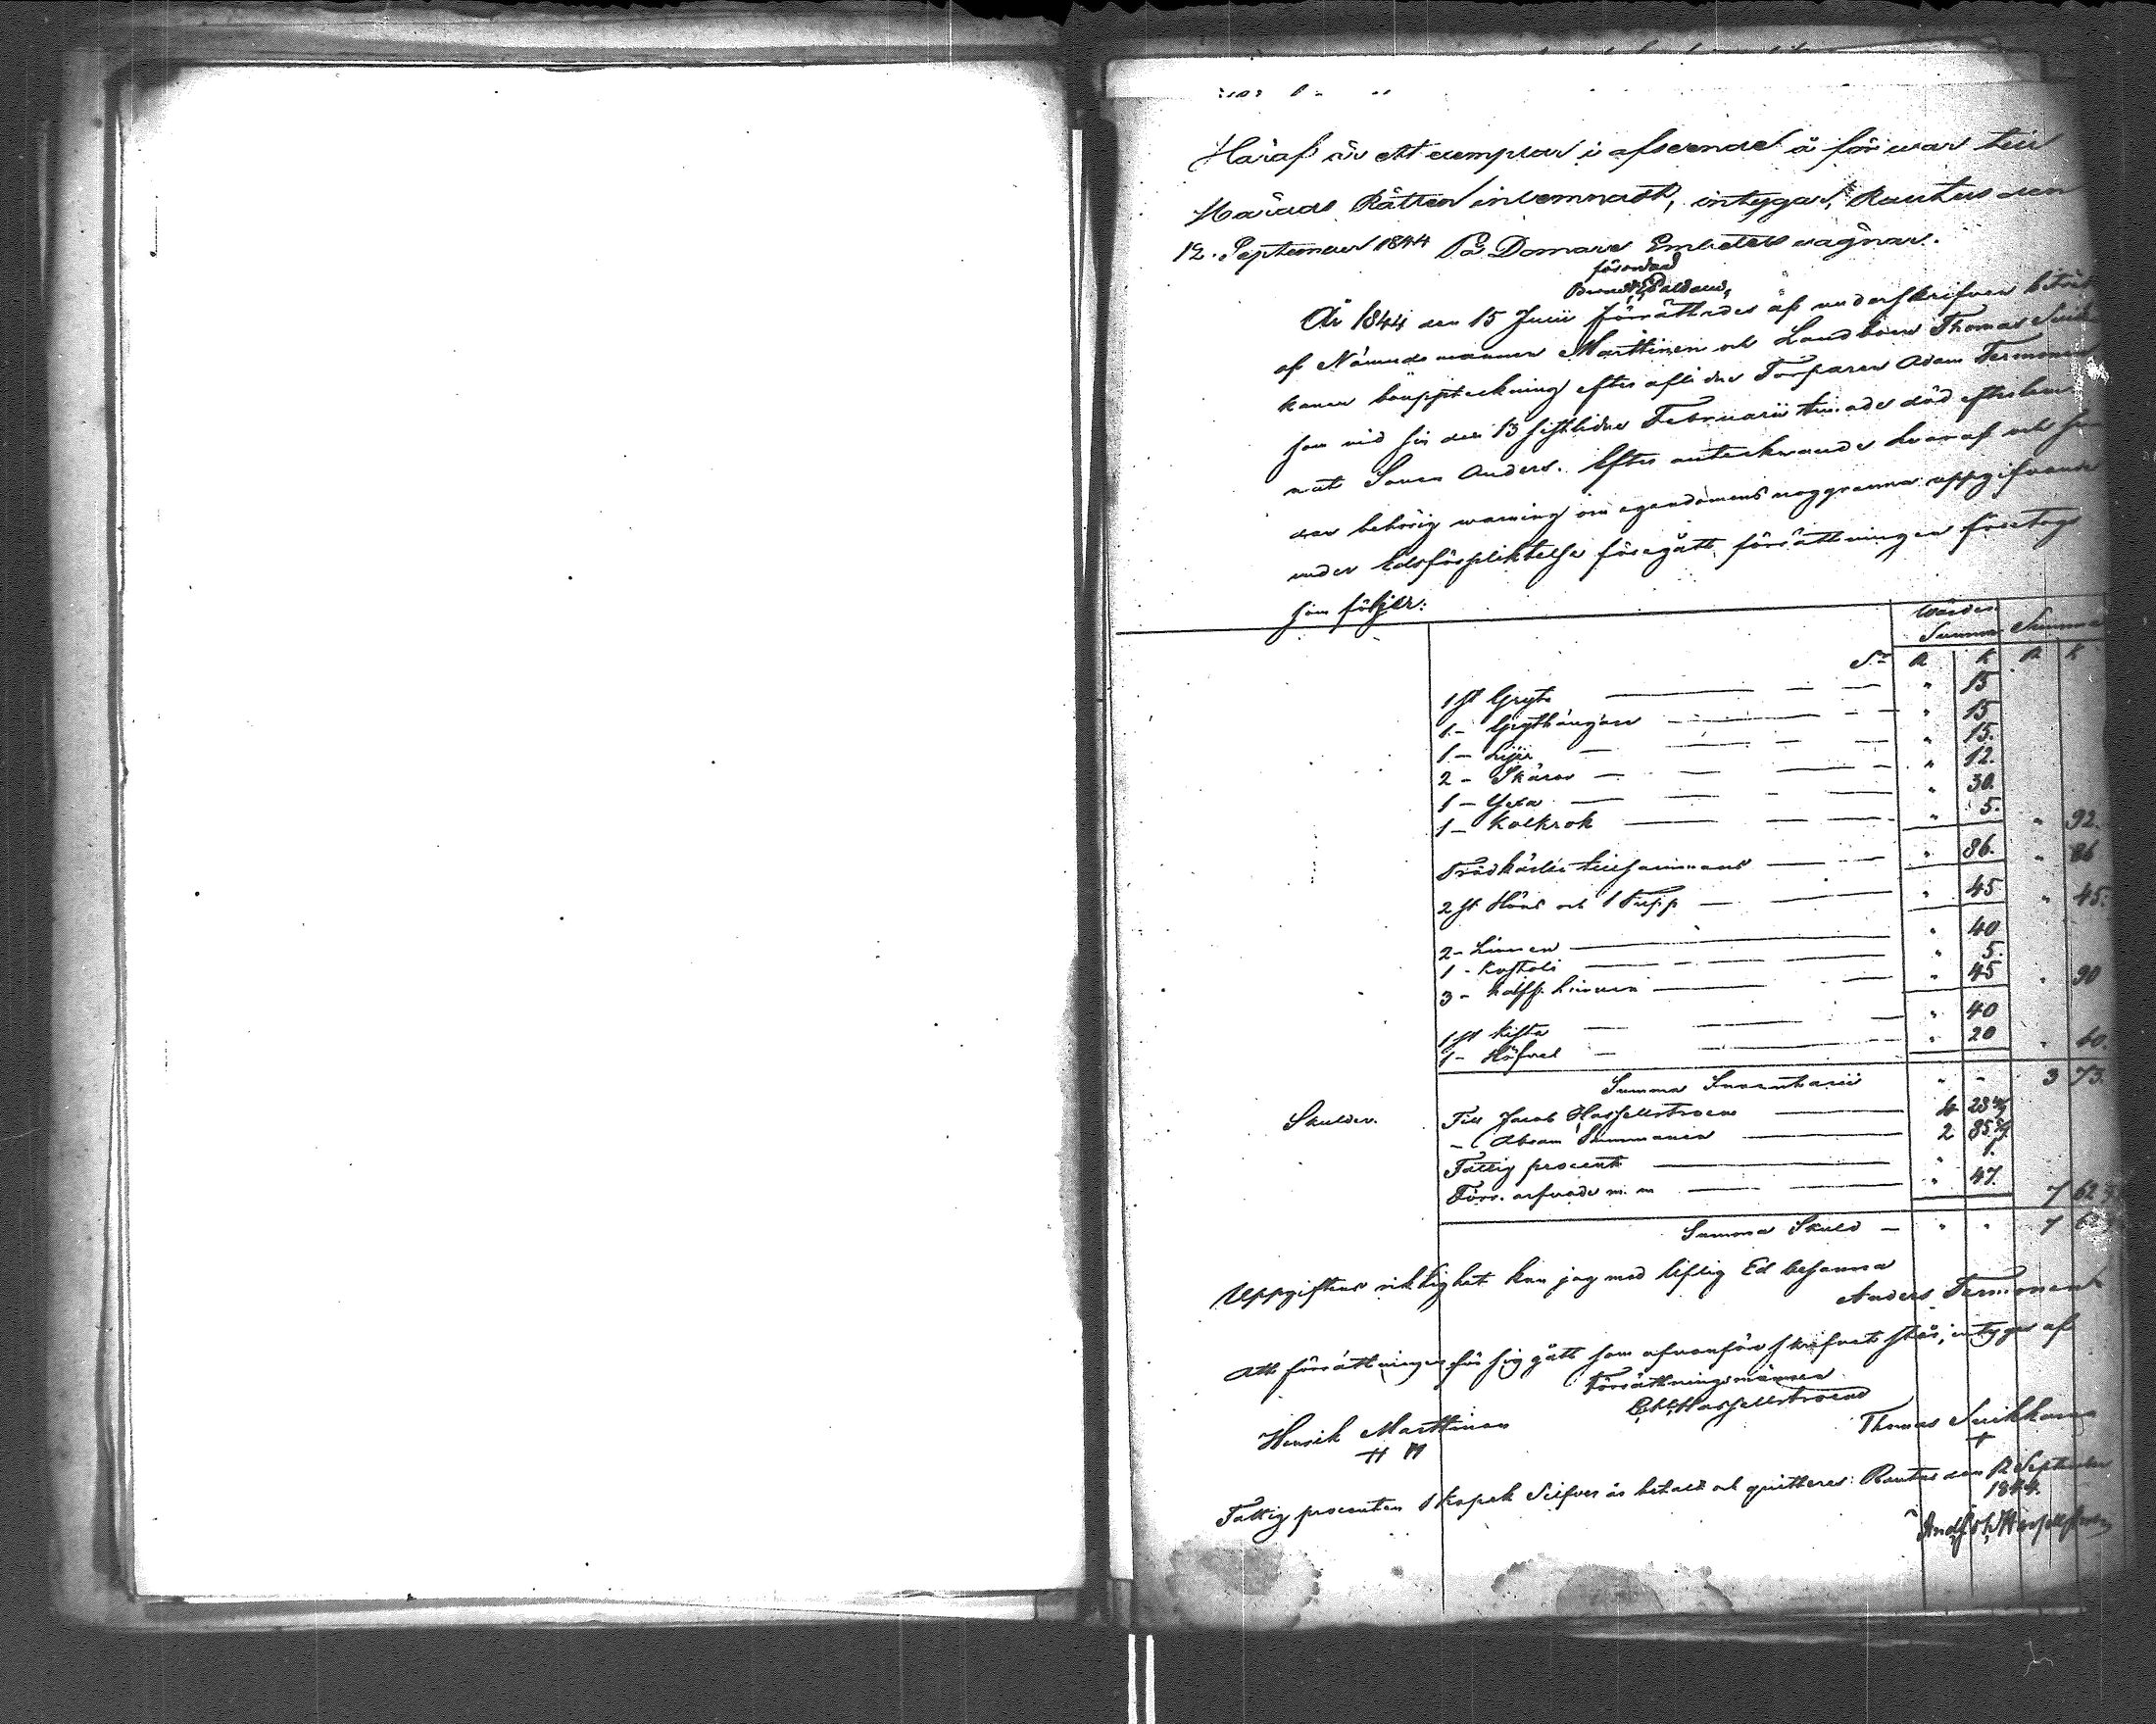 Häraf är ett exemplar i afseende å förvar till
Härads Rätten inlemnadt, intygar, Rautus den
12. September 1844 På Domare Embetets vägnar.
förordnad
År 1844 den 15 Julii förrättades af underskrifven biträdd
af Nämndemannen Marttinen och Landbonden Thomas Suik
kanen bouppteckning efter aflidne Torparen Adam Termonen
som vid sin den 13 sistlidne Februarii timade död efterlem
nat Sonen Anders. Efter antecknande hvaraf och se
dan behörig warning om egendomens noggranna uppgifvande
under Edsförpliktelse föregått, förrättningen företogs
som följer:
Värdes
Summor Summa
Sr R k R k
1 st Gryta " 15
1 - Grythängare " 15
1 - Lijer " 15.
2 - Skäror " 12.
1 - Yxa " 30.
1 - Kolkrok " 5. " 92.
Trädkärler tillsammans " 86. " 86
2 st Höns och 1 Tupp " 45 " 45.
2 - Linnen " 40
1 - Kostoli " 5.
3 - halfs. Linnen " 45 " 90
1 st Kista " 40
1 - Höfvel " 20 " 60.
Summa Inventarii " - 3 73.
Skulder. Till Jacob Hasselstroem 4 28 4/7
- Abram Summanen 2 85 5/7
Fattig procent " 1.
Förr. arfvode m. m " 47. 7 62
Summa Skuld - " " 7 62
Uppgiftens riktighet kan jag med liflig Ed besanna
Anders Termonen
Att förrättningen för sig gått som ofvanföre skrifvet står, intygas af
Förrättningsmännen
Hasselstroem
Henrik Marttinen Thomas Suikkanen
H M +
Fattig procenten 1 Kopek Silfver är betalt och quitteras: Rautus den 12 September
1844.